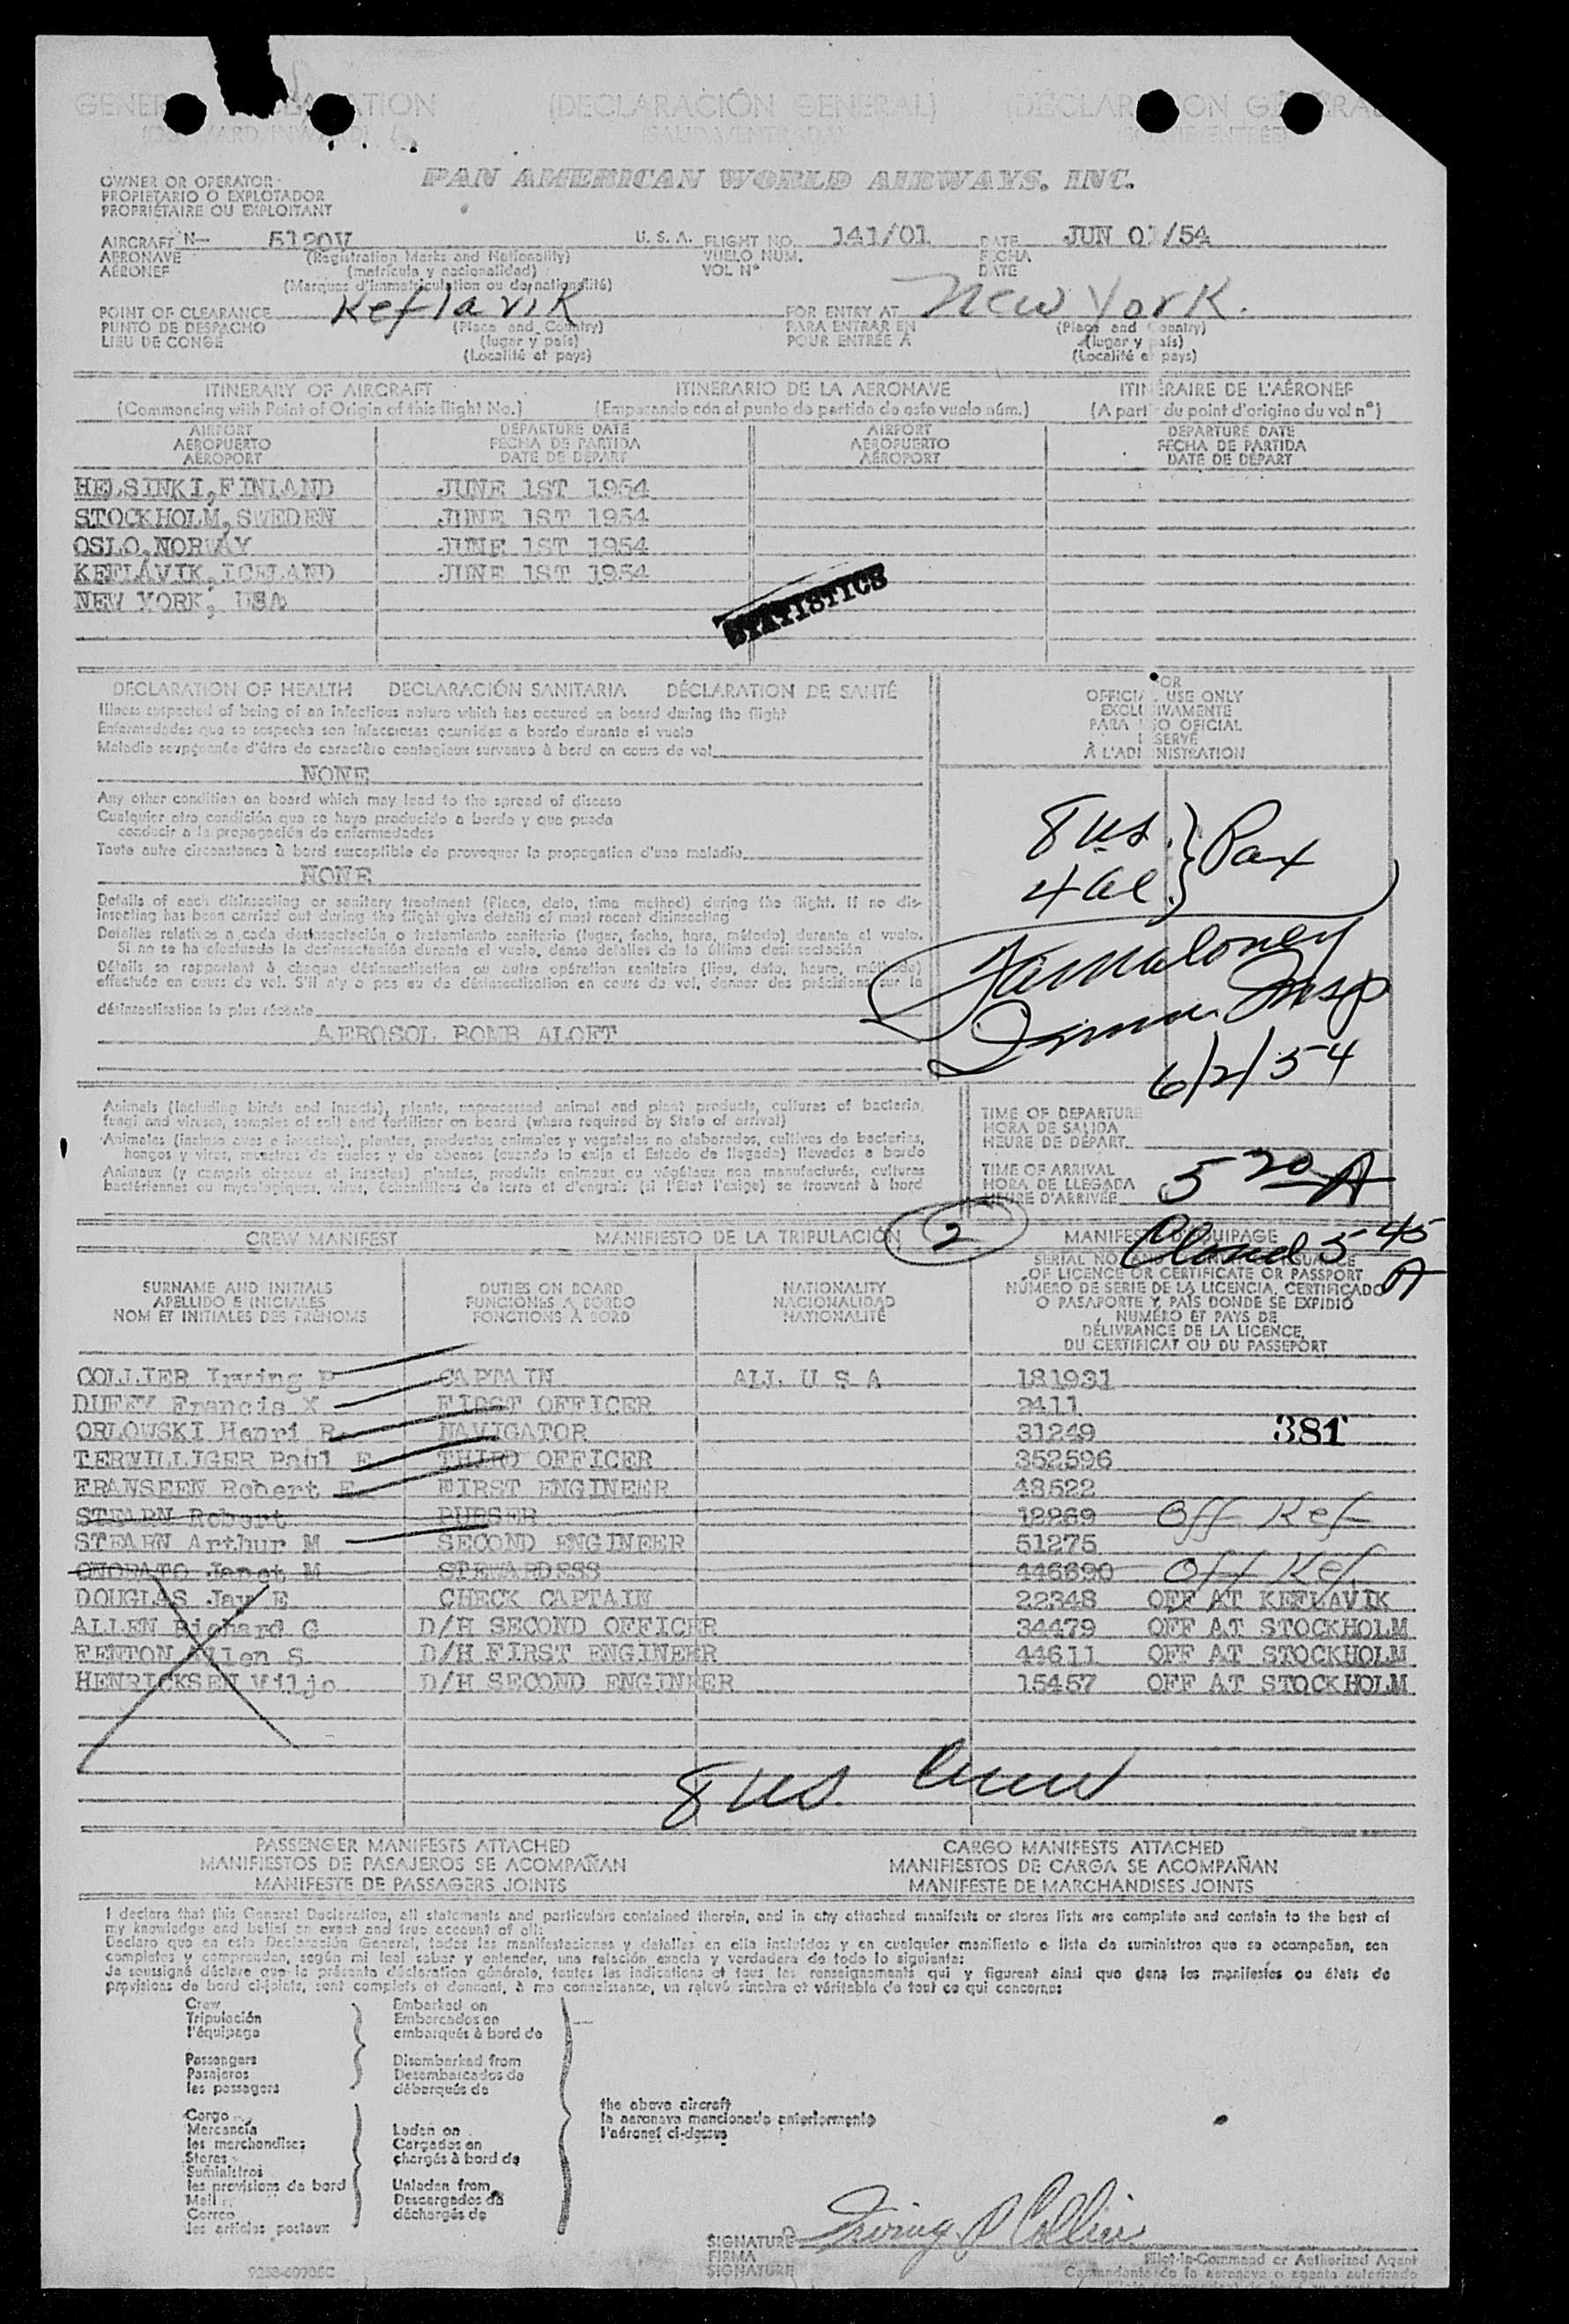 (DECLARACIÓN GENERAL)
OWNER OR OPERATOR
PROPIETARIO O EXPLOTADOR
PROPRIÉTAIRE OU EXPLOITANT
PAN AMERICAN WORLD AIRWAYS, INC.
AIRCRAFT N— 5120V U. S. A. FLIGHT NO. 141/01 DATE JUN 01/54
AERONAVE (Registration Marks and Nationality) VUELO NUM. FECHA
AÉRONEF (matrícula y nacionalidad) VOL N° DATE
(Marques d'immatriculation ou de nationalité)
POINT OF CLEARANCE Keflavik FOR ENTRY AT New York.
PUNTO DE DESPACHO (Place and Country) PARA ENTRAR EN (Place and Country)
LIEU DE CONGÉ (lugar y país) POUR ENTRÉE A (lugar y país)
(Localité et pays) (Localité et pays)
ITINERARY OF AIRCRAFT ITINERARIO DE LA AERONAVE ITINÉRAIRE DE L'AÉRONEF
(Commencing with Point of Origin of this flight No.) (Empezando con el punto de partida de este vuelo núm.) (A partir du point d'origine du vol n°)
AIRPORT DEPARTURE DATE AIRPORT DEPARTURE DATE
AEROPUERTO FECHA DE PARTIDA AEROPUERTO FECHA DE PARTIDA
AÉROPORT DATE DE DÉPART AÉROPORT DATE DE DÉPART
HELSINKI,FINLAND JUNE 1ST 1954
STOCKHOLM,SWEDEN JUNE 1ST 1954
OSLO,NORWAY JUNE 1ST 1954
KEFLAVIK,ICELAND JUNE 1ST 1954
NEW YORK, USA
STATISTICS
DECLARATION OF HEALTH DECLARACIÓN SANITARIA DÉCLARATION DE SANTÉ
Illness suspected of being of an infectious nature which has occured on board during the flight
Enfermedades que se sospecha son infecciosas ocurridas a bordo durante el vuelo
Maladie soupçonnée d'être de caractère contagieux survenue à bord en cours de vol
NONE
Any other condition on board which may lead to the spread of disease
Cualquier otra condición que se haya producido a bordo y que pueda
conducir a la propagación de enfermedades
Toute autre circonstance à bord susceptible de provoquer la propagation d'une maladie
NONE
Details of each disinsecting or sanitary treatment (Place, date, time method) during the flight. If no dis-
insecting has been carried out during the flight give details of most recent disinsecting
Detalles relativos a cada desinsectación o tratamiento sanitario (lugar, fecha, hora, método) durante el vuelo.
Si no se ha efectuado la desinsectación durante el vuelo, dense detalles de la última desinsectación
Détails se rapportant à chaque désinsectisation ou autre opération sanitaire (lieu, date, heure, méthode)
effectuée en cours de vol. S'il n'y a pas eu de désinsectisation en cours de vol, donner des précisions sur la
désinsectisation la plus récente
AEROSOL BOMB ALOFT
FOR
OFFICIAL USE ONLY
EXCLUSIVAMENTE
PARA USO OFICIAL
RÉSERVÉ
À L'ADMINISTRATION
8 us. } Pax
4 al.
Maloney
Immn. Insp
6/2/54
Animals (including birds and insects), plants, unprocessed animal and plant products, cultures of bacteria,
fungi and viruses, samples of soil and fertilizer on board (where required by State of arrival)
Animales (incluso aves e insectos), plantas, productos animales y vegetales no elaborados, cultivos de bacterias,
hongos y virus, muestras de suelos y de abonos (cuando lo exija el Estado de llegada) llevados a bordo
Animaux (y compris oiseaux et insectes) plantes, produits animaux ou végétaux non manufacturés, cultures
bactériennes ou mycologiques, virus, échantillons de terre et d'engrais (si l'État l'exige) se trouvant à bord
TIME OF DEPARTURE
HORA DE SALIDA
HEURE DE DÉPART
TIME OF ARRIVAL
HORA DE LLEGADA 5 20 A
HEURE D'ARRIVÉE
CREW MANIFEST MANIFIESTO DE LA TRIPULACIÓN 2 MANIFESTE D'ÉQUIPAGE
5 45 A
SURNAME AND INITIALS DUTIES ON BOARD NATIONALITY SERIAL NO. AND COUNTRY OF ISSUANCE
APELLIDO E INICIALES FUNCIONES A BORDO NACIONALIDAD OF LICENCE OR CERTIFICATE OR PASSPORT
NOM ET INITIALES DES PRÉNOMS FONCTIONS À BORD NATIONALITÉ NÚMERO DE SERIE DE LA LICENCIA, CERTIFICADO
O PASAPORTE Y PAÍS DONDE SE EXPIDIÓ
NUMÉRO ET PAYS DE
DÉLIVRANCE DE LA LICENCE,
DU CERTIFICAT OU DU PASSEPORT
COLLIER Irving P CAPTAIN ALL U S A 181931
DUFFY Francis X FIRST OFFICER 2411
ORLOWSKI Henri R NAVIGATOR 31249 381
TERWILLIGER Paul E THIRD OFFICER 352596
FRANSEEN Robert E FIRST ENGINEER 48522
STEARN Robert PURSER 12269 Off Kef
STEARN Arthur M SECOND ENGINEER 51275
ONORATO Janet M STEWARDESS 446690 Off Kef.
DOUGLAS Jay E CHECK CAPTAIN 22348 OFF AT KEFLAVIK
ALLEN Richard G D/H SECOND OFFICER 34479 OFF AT STOCKHOLM
FENTON Allen S D/H FIRST ENGINEER 44611 OFF AT STOCKHOLM
HENRICKSEN Viljo D/H SECOND ENGINEER 15457 OFF AT STOCKHOLM
8 us. Crew
PASSENGER MANIFESTS ATTACHED CARGO MANIFESTS ATTACHED
MANIFIESTOS DE PASAJEROS SE ACOMPAÑAN MANIFIESTOS DE CARGA SE ACOMPAÑAN
MANIFESTE DE PASSAGERS JOINTS MANIFESTE DE MARCHANDISES JOINTS
I declare that this General Declaration, all statements and particulars contained therein, and in any attached manifests or stores lists are complete and contain to the best of
my knowledge and belief an exact and true account of all:
Declaro que en esta Declaración General, todas las manifestaciones y detalles en ella incluidos y en cualquier manifiesto o lista de suministros que se acompañan, son
completos y comprenden, según mi leal saber y entender, una relación exacta y verdadera de todo lo siguiente:
Je soussigné déclare que la présente déclaration générale, toutes les indications et tous les renseignements qui y figurent ainsi que dans les manifestes ou états de
provisions de bord ci-joints, sont complets et donnent, à ma connaissance, un relevé sincère et véritable de tout ce qui concerne:
Crew Embarked on
Tripulación Embarcados en
l'équipage embarqués à bord de
Passengers Disembarked from
Pasajeros Desembarcados de
les passagers débarqués de
the above aircraft
la aeronave mencionada anteriormente
l'aéronef ci-dessus
Cargo
Mercancía Laden on
les marchandises Cargados en
Stores chargés à bord de
Suministros
les provisions de bord Unladen from
Mail Descargados de
Correo déchargés de
les articles postaux
SIGNATURE Irving P Collier
FIRMA Pilot-in-Command or Authorized Agent
SIGNATURE Comandante de la aeronave o agente autorizado